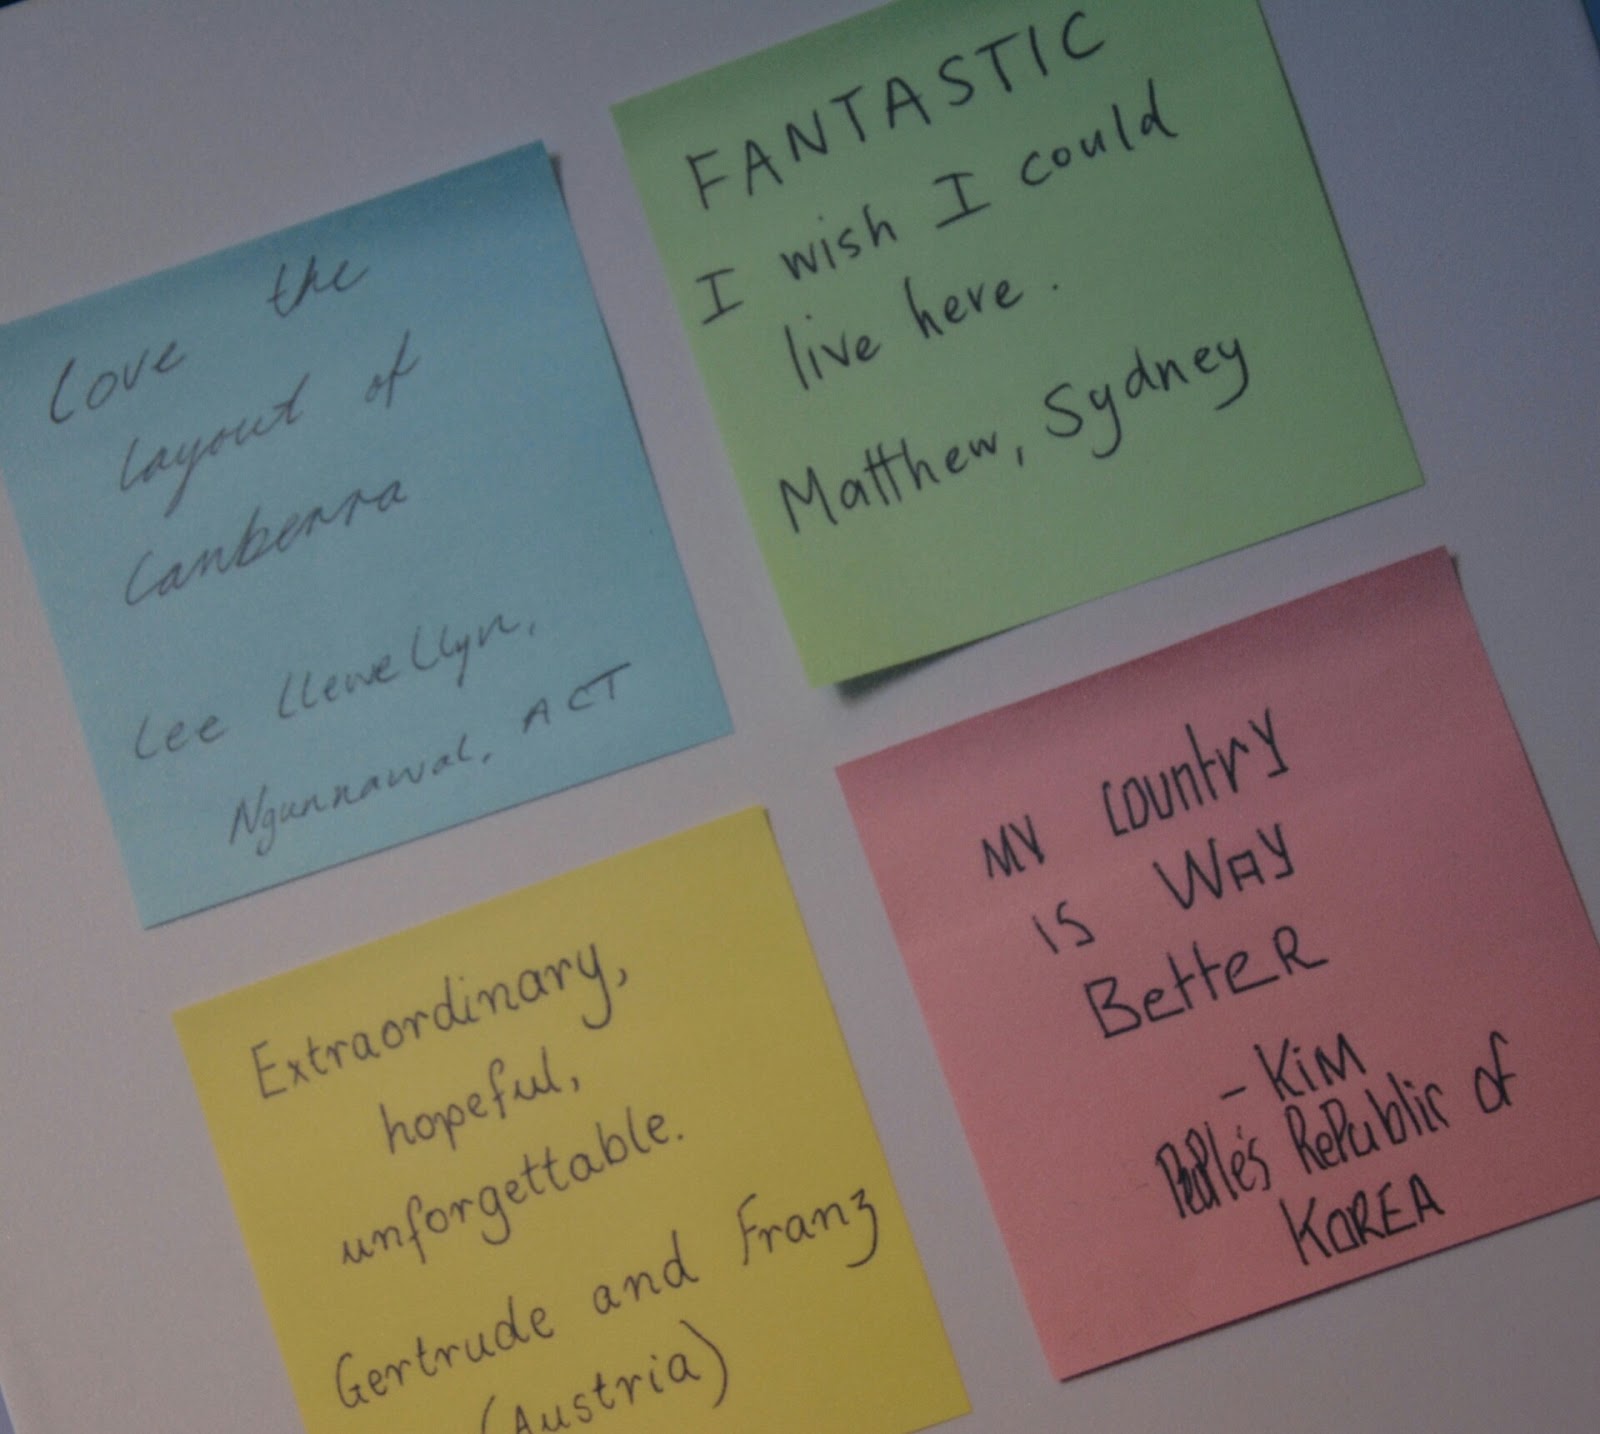 Love the
layout of
Canberra
Lee Llewellyn,
Ngunnawal, ACT
FANTASTIC
I wish I could
live here.
Matthew, Sydney
Extraordinary,
hopeful,
unforgettable.
Gertrude and Franz
(Austria)
MY COUNTRY
iS WAY
BetteR
- KiM
PeoPle's RePublic of
KOREA